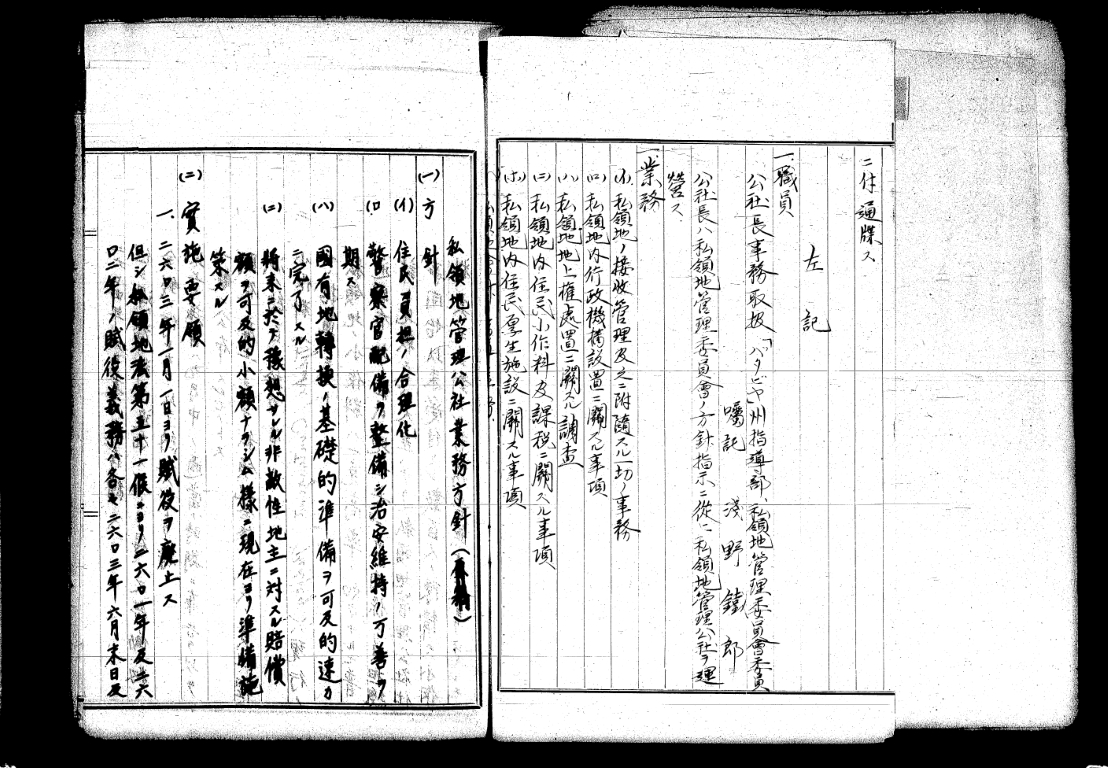 ニ付通牒ス
左記
一、職員
公社長事務取扱「バタビヤ」州指導部、私領地管理委員會委員
囑託 淺野鐵郎
公社長ハ私領地管理委員會ノ方針指示ニ從ヒ私領地管理公社ヲ理
營ス
一、業務
(イ) 私領地ノ接收管理及之ニ附隨スル一切ノ事務
(ロ) 私領地内行政機構設置ニ關スル事項
(ハ) 私領地地上權處置ニ關スル調査
(ニ) 私領地内住民小作料及課税ニ關スル事項
(ホ) 私領地内住民厚生施設ニ關スル事項
私領地管理公社業務方針(原稿)
(一) 方針
(イ) 住民負担ノ合理化
(ロ) 警察官配備ヲ整備シ治安維持ノ万善ヲ
期ス
(ハ) 國有地轉換ノ基礎的準備ヲ可及的速カ
ニ完了スル
(ニ) 將來ニ於テ豫想サレル非敵性地主ニ対スル賠償
額ヲ可及的小額ナラシム樣ニ現在ヨリ準備施
策スル
(二) 實施要領
一、二六〇三年一月一日ヨリ賦役ヲ廢止ス
但シ私領地法第五十一條ニヨリ二六〇一年及二六
〇二年ノ賦役義務ハ各々二六〇三年六月末日及